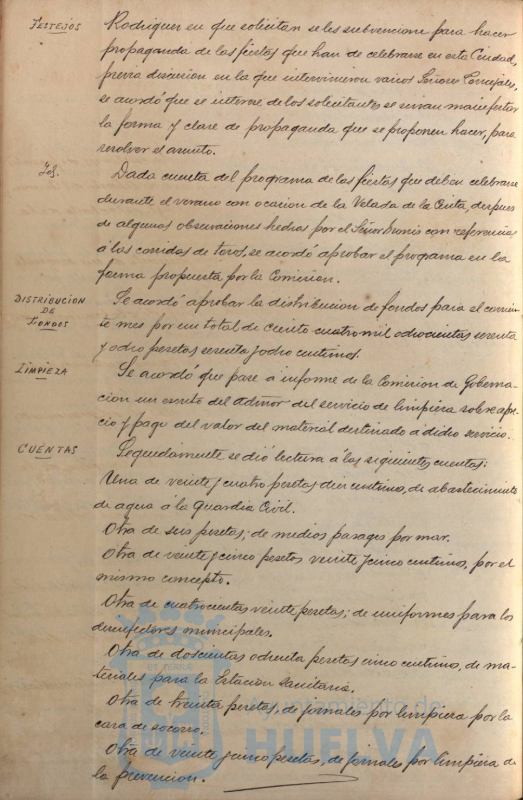 FESTEJOS
Rodriguez en que solicitan se les subvencione para hacer
propaganda de las fiestas que han de celebrarse en esta Ciudad,
previa discusion en la que intervinieron varios Señores Concejales,
se acordó que se interese de los solicitantes se sirvan manifestar
la forma y clase de propaganda que se proponen hacer, para
resolver el asunto.
Id.
Dada cuenta del programa de las fiestas que deben celebrarse
durante el verano con ocasion de la Velada de la Cinta, despues
de algunas observaciones hechas por el Señor con referencia
á las corridas de toros, se acordó aprobar el programa en la
forma propuesta por la Comision.
DISTRIBUCION
DE
FONDOS
Se acordó aprobar la distribucion de fondos para el corrien-
te mes por un total de ciento cuatro mil ochocientas sesenta
y ocho pesetas sesenta y ocho centimos.
LIMPIEZA
Se acordó que pase á informe de la Comision de Goberna-
cion un escrito del del servicio de limpieza sobre apre-
cio y pago del valor del material destinado á dicho servicio.
CUENTAS
Seguidamente se dió lectura á las siguientes cuentas:
Una de veinte y cuatro pesetas diez centimos, de abastecimiento
de agua á la Guardia Civil.
Otra de seis pesetas; de medios pasages por mar.
Otra de veinte y cinco pesetas veinte y cinco centimos, por el
mismo concepto.
Otra de cuatrocientas veinte pesetas; de uniformes para los
desinfectores municipales.
Otra de doscientas ochenta pesetas cinco centimos, de ma-
teriales para la Estacion Sanitaria.
Otra de treinta pesetas, de jornales por limpieza por la
casa de socorro.
Otra de veinte y cinco pesetas, de jornales por limpieza de
la prevencion.
Ayuntamiento de
HUELVA